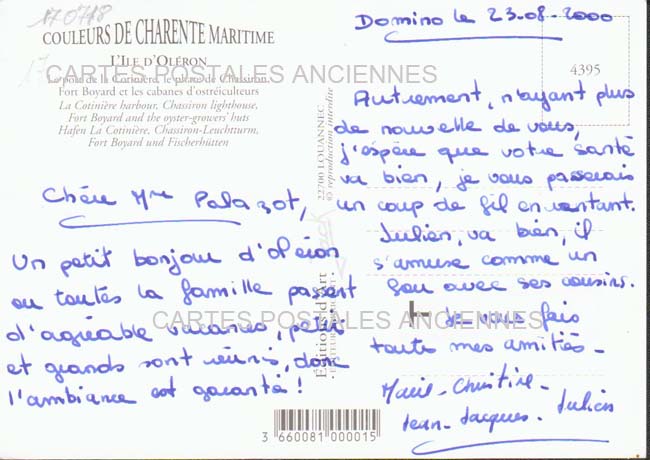 170718
COULEURS DE CHARENTE MARITIME
L'ILE D'OLÉRON
Le port de la Cotinière, le phare de Chassiron,
Fort Boyard et les cabanes d'ostréiculteurs
La Cotinière harbour, Chassiron lighthouse,
Fort Boyard and the oyster-growers' huts
Hafen La Cotinière, Chassiron-Leuchtturm,
Fort Boyard und Fischerhütten
CARTES POSTALES ANCIENNES
Chère Mme Palazot,
Un petit bonjour d'oléron
ou toutes la famille passent
d'agréable vacances, petits
et grands sont réunis, donc
l'ambiance est garanté!
22700 LOUANNEC
© reproduction interdite
Editions d'Art
Domino le 23.08-2000
4395
Autrement, n'ayant plus
de nouvelle de vous,
j'espère que votre santé
va bien, je vous passerais
un coup de fil en rentrant.
Julien, va bien, il
s'amuse comme un
fou avec ses cousins.
Je vous fais
toute mes amitiés-
Marie-Christine-
Jean-Jacques-Julien
CARTES POSTALES ANCIENNES
3 660081 000015